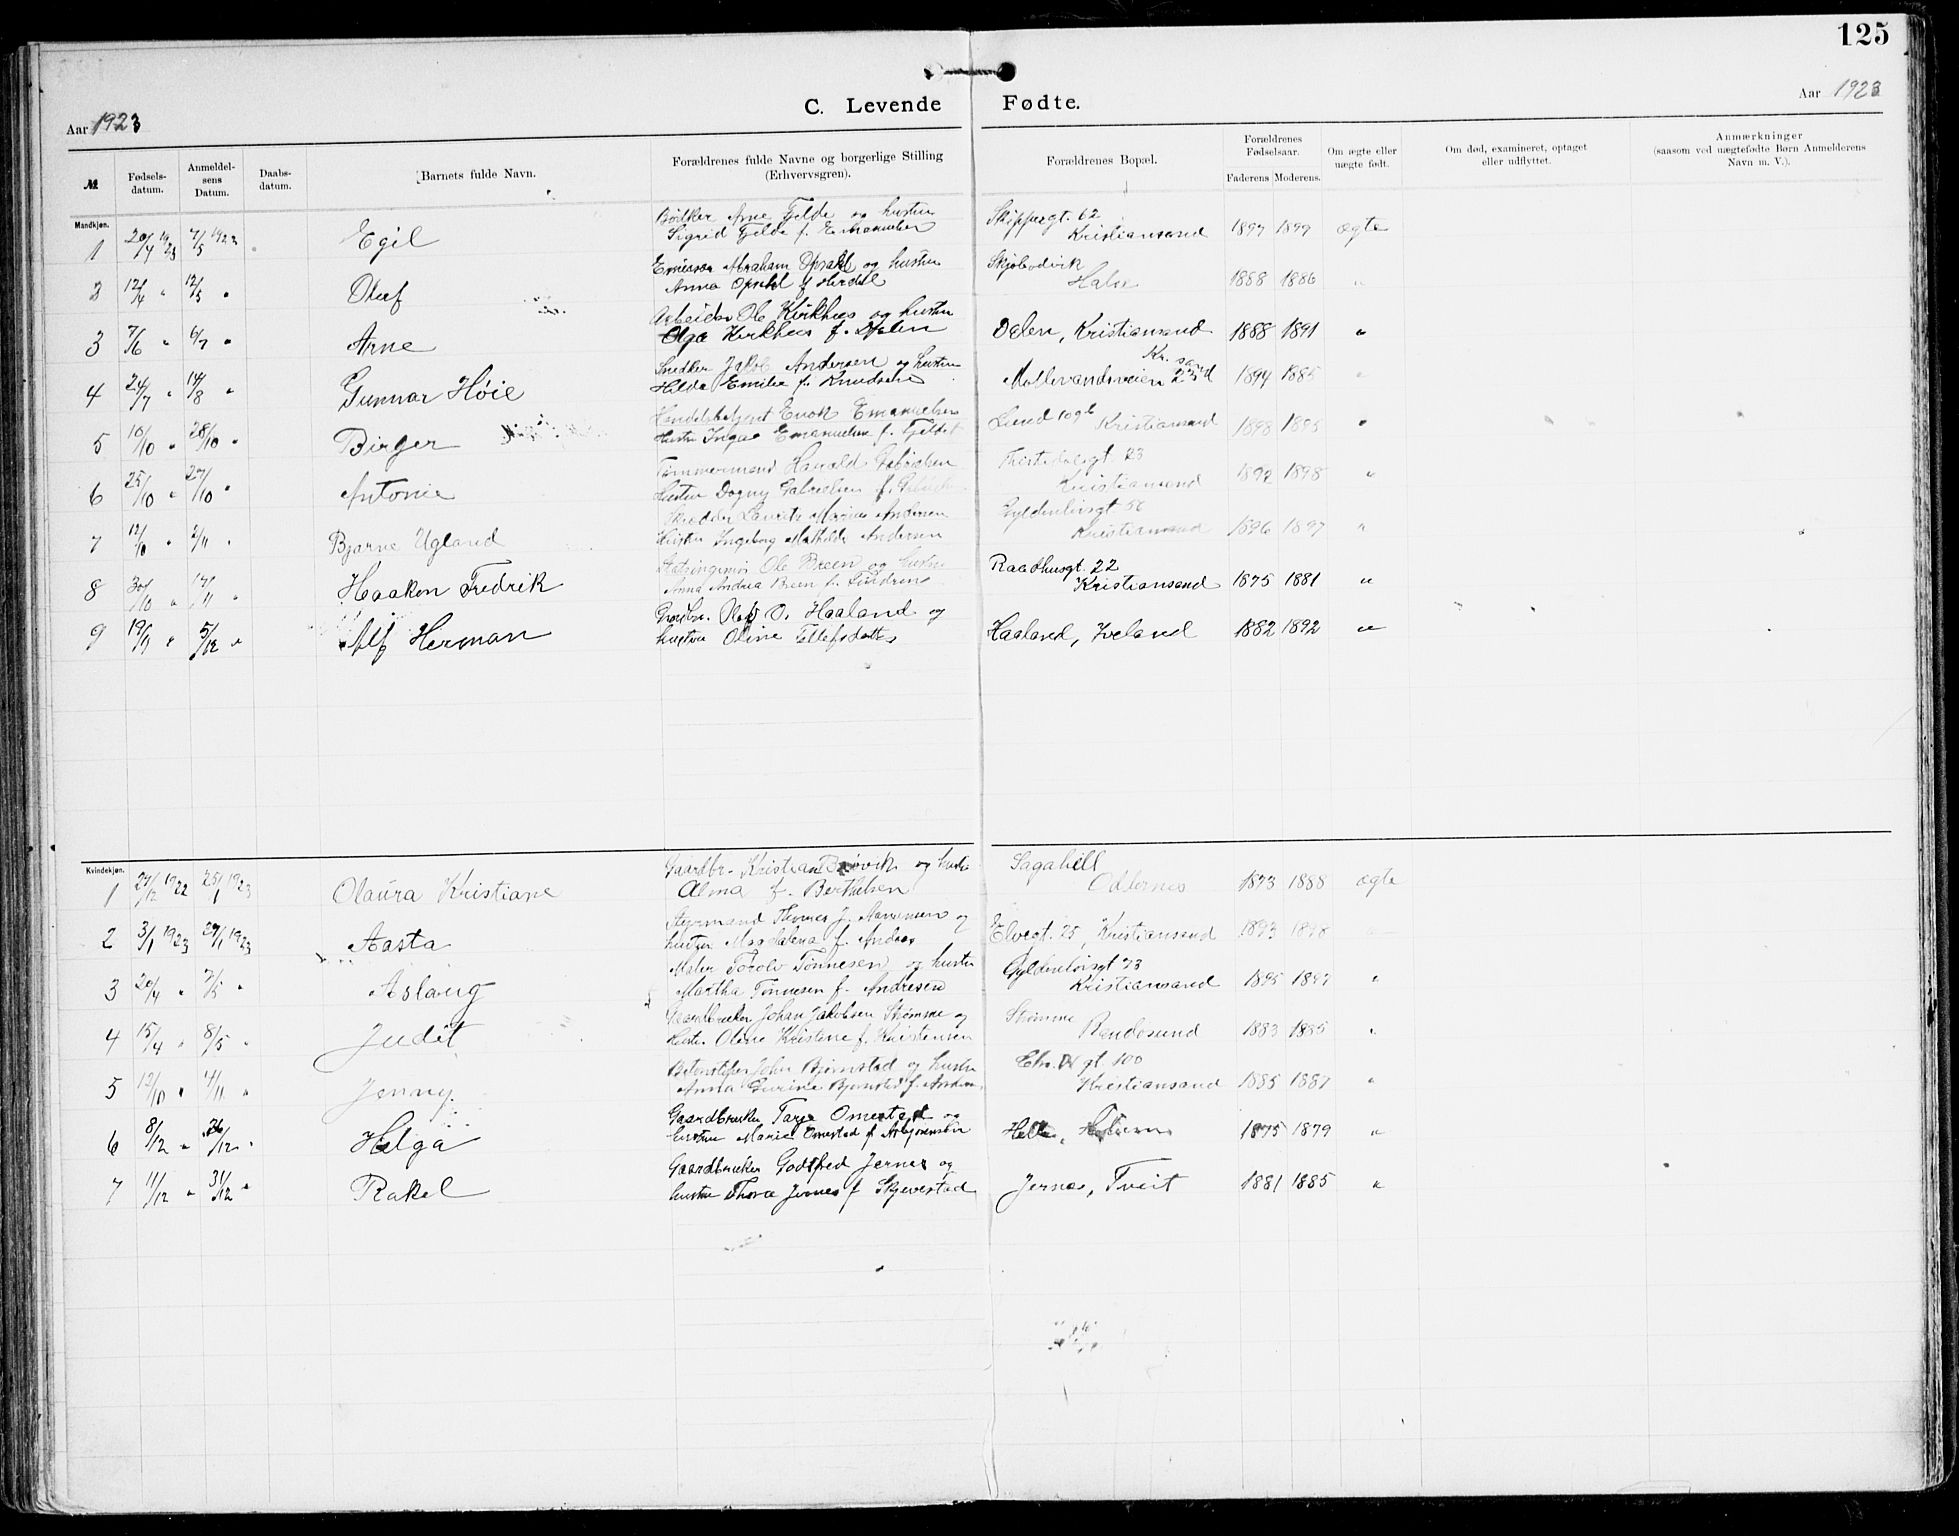 125
C. Levende Fødte.
Aar 1923
Aar 1923
№
Fødsels-datum.
Anmeldel-sens Datum.
Daabs-datum.
Barnets fulde Navn.
Forældrenes fulde Navne og borgerlige Stilling (Erhvervsgren).
Forældrenes Bopæl.
Forældrenes Fødselsaar.
Faderens Moderens.
Om ægte eller uægte født.
Om død, examineret, optaget eller udflyttet.
Anmærkninger (saasom ved uægtefødte Børn Anmelderens Navn m. V.).
Mandkjøn.
1 20/4 1923 7/5 1923 Egil Bødker Arne Fjelde og hustru Skippergt. 62
Sigrid Fjelde f. Emanuelsen Kristiansand 1897 1899 ægte
2 12/4 " 12/5 " Olaf Abraham Opsahl og hustru
Anna Opsahl f. Herdal Halse 1888 1886 "
3 7/6 " 6/7 " Arne Arbeider Ole Kirkhus og hustru
Olga Kirkhus f. Dalen Dalen, Kristiansand 1888 1891 "
4 24/7 " 14/8 " Gunnar Høie Snedker Jakob Andersen og hustru
Hilda Emilie f. Knudsen Møllevandsveien Kr. sand 1894 1885 "
5 10/10 " 28/10 " Birger Enok Emanuelsen Lund
Hustru Inga Emanuelsen f. Kristiansand 1898 1895 "
6 25/10 " 27/10 " Antonie Tømmermand Harald Gabrielsen 23
Hustru Dagny Gabrielsen f. Kristiansand 1892 1898 "
7 12/10 " 2/11 " Bjarne Ugland Skrædder Lauritz Marius Andersen Gyldenløvsgt 56
Hustru Ingeborg Mathilde Andersen Kristiansand 1896 1897 "
8 30/10 " 17/11 " Haakon Fredrik Ole Breen og hustru Raadhusgt. 22
Anna Andrea Breen f. Kristiansand 1875 1881 "
9 19/9 " 5/12 " Alf Herman Gaardbr. Olaf O. Haaland og
hustru Oline Tellefsdatter Haaland, Iveland 1882 1892 "
Kvindekjøn.
1 27/12 1922 25/1 1923 Olaura Kristiane Gaardbr. Kristian og hustru Sagahell
Alma f. Berthelsen Oddernes 1873 1888 ægte
2 3/1 1923 27/1 1923 Aasta Styrmand Thomas J. og
hustru Magdalena f. Elvegt. 25, Kristiansand 1893 1898 "
3 20/4 " 7/5 " Aslaug Maler Torolv Tønnesen og hustru Gyldenløvsgt 73
Martha Tønnesen f. Andresen Kristiansand 1895 1897 "
4 15/4 " 8/5 " Judit Gaardbruker Johan Jakobsen Strømme og Strømme
Hustru Oline Kristine f. Kristensen Randesund 1883 1885 "
5 12/10 " 4/11 " Jenny. John Bjørnstad og hustru gt 100
Anna Gurine Bjørnstad f. Kristiansand 1885 1887 "
6 8/12 " 26/12 " Helga Gaardbruker Tarje Omestad og
hustru Marie Omestad f. 1875 1879 "
7 11/12 " 31/12 " Rakel Gaardbruker Godtfred Jernes og
hustru Thora Jernes f Skjevestad Jernes, Tveit 1881 1885 "